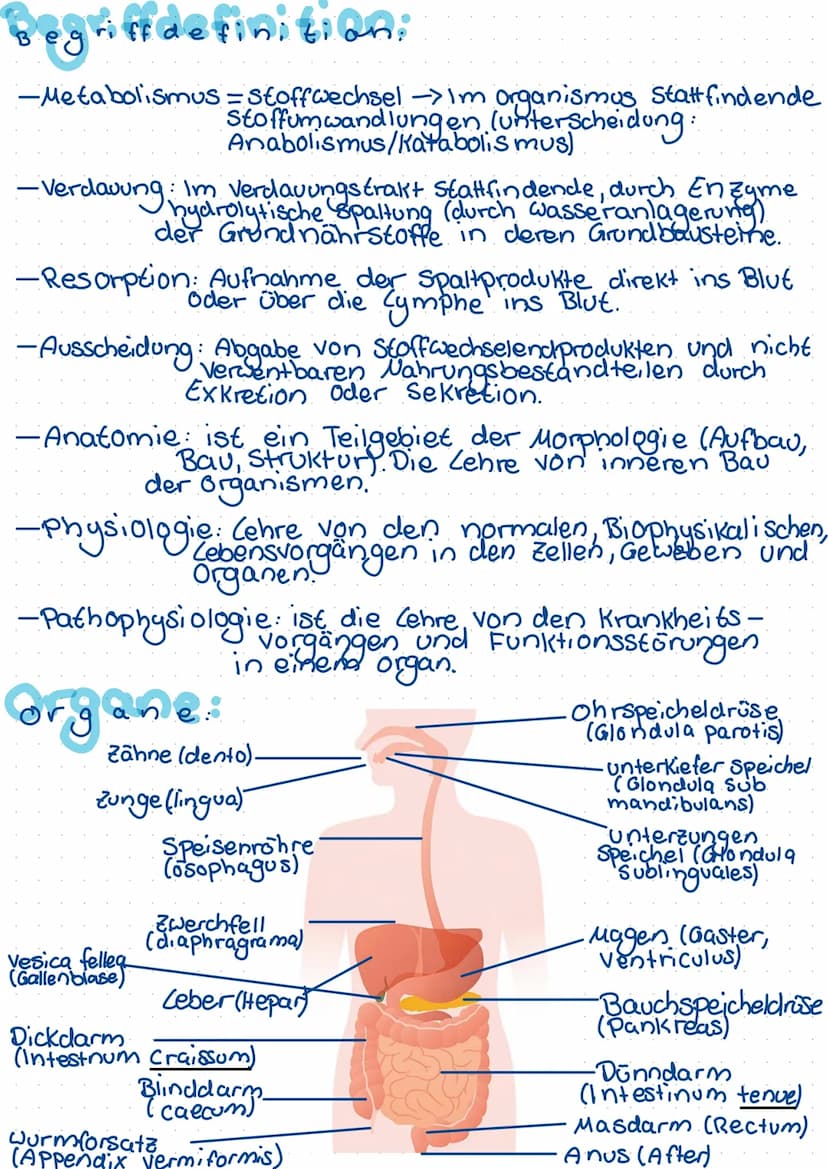 Begriffdefinition:
—Metabolismus = Stoffwechsel → Im Organismus Stattfindende
Stoffumwandlungen (unterscheidung:
Anabolismus/Katabolismus)
—Verdauung: Im Verdauungstrakt Stattfindende, durch Enzyme
hydrolytische Spaltung (durch Wasseranlagerung)
der Grundnährstoffe in deren Grundbausteine.
—Resorption: Aufnahme der Spaltprodukte direkt ins Blut
Oder über die Lymphe ins Blut.
—Ausscheidung: Abgabe von Stoffwechselendprodukten und nicht
Verwentbaren Nahrungsbestandteilen durch
Exkretion oder Sekretion.
—Anatomie: ist ein Teilgebiet der Morphologie (Aufbau,
Bau, Struktur). Die Lehre von inneren Bau
der Organismen.
—Physiologie: Lehre von den normalen, Biophysikalischen,
Lebensvorgängen in den Zellen, Geweben und
Organen.
—Pathophysiologie: ist die Lehre von den Krankheits-
vorgängen und Funktionsstörungen
in einem Organ.
Organe:
Ohrspeicheldrüse
(Glondula parotis)
Zähne (dento)
unterkiefer Speichel
(Glondula Sub
mandibulans)
Zunge (lingua)
unterzungen
Speichel (Glondula
Sublinguales)
Speisenröhre
(ösophagus)
Zwerchfell
(diaphragrama)
Magen (Gaster,
Ventriculus)
Vesica fellea
(Gallenblase)
Leber (Hepar)
Bauchspeicheldrüse
(Pankreas)
Dickdarm
(Intestnum Craissum)
Dünndarm
(Intestinum tenue)
Blinddarm
(caecum)
Masdarm (Rectum)
Wurmforsatz
(Appendix vermiformis)
Anus (After)